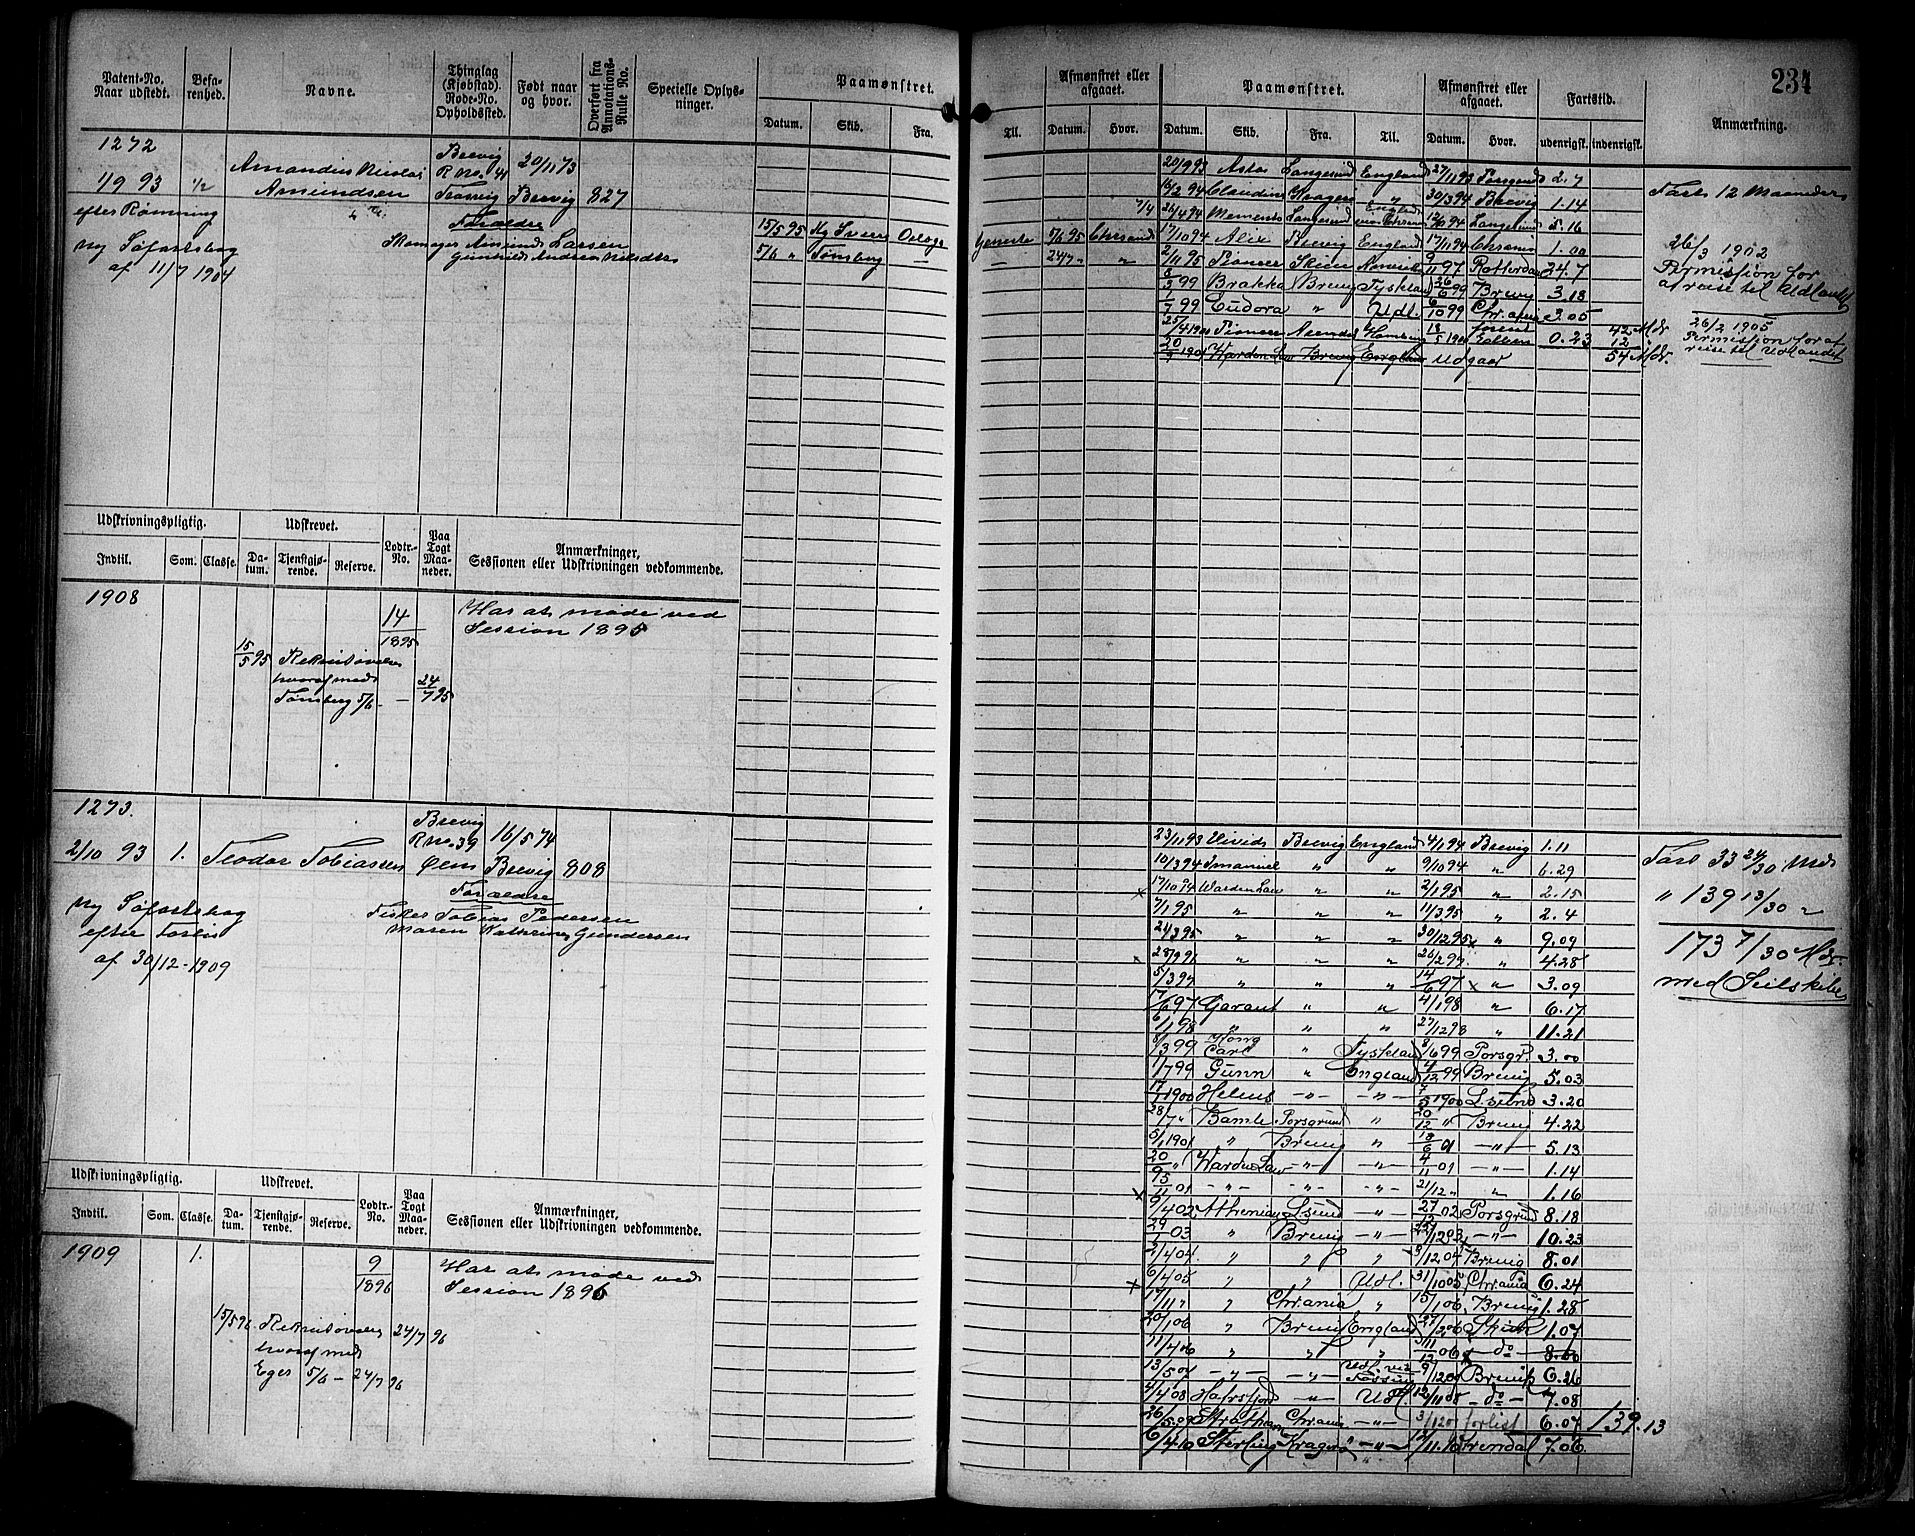 234
Patent-No. Naar udstedt. Befa-renhed. Navne. Thinglag (Kjøbstad). Rode-No. Opholdssted. Født naar og hvor. Overført fra Annotations-Rulle No. Specielle Oplys-ninger. Paamønstret.
Datum. Skib. Fra.
Til. Afmønstret eller afgaaet. Paamønstret. Afmønstret eller afgaaet. Fartstid. Anmærkning.
Datum. Hvor. Datum. Skib. Fra. Til. Datum. Hvor. udenrigsk. indenrigsk.
1272
1/9 93 1/2 Amandus Nicolai Amundsen
Brevig R No. 41
20/11 73 Brevig 827
efter Rømning
ny Søfartsbog
af 11/7 1904
Forældre
Skomager Amund Larsen
Gunhild Andrea Nilsdtr
15/5 95
5/6 " Tønsberg —
5/6 95 Chrsand
— 24/7 " "
20/9 93 Asta Langesund England 27/11 93 Porsgrund 2.7
16/2 94 Claudine Kragerø " 30/3 94 Brevig 1.14
26/4 94 Memento Langesund Langesund 5.16
17/10 94 Alix Brevig England 17/11 94 Chrsand 1.00
2/11 95 Pioneer Skien 9/11 97 Rotterdam 24.7
8/3 99 Brakka Brevig Tyskland 26/6 99 Brevig 3.18
1/7 99 Eudora " Udl. 6/10 99 3.05
25/4 1901 Pioneer Arendal Hamburg 18/5 1901 0.23
20/7 1901 Warden Law Brevig England Udgaar
42 Mdr
12 "
54 Mdr.
Fart 12 Maaneder
26/3 1902
Permission for
afreise til Udlandet
26/2 1905
Permission for af
reise til Udlandet
Udskrivningspligtig. Udskrevet. Lodtr.-No. Paa Togt Maa-neder. Anmærkninger, Sessionen eller Udskrivningen vedkommende.
Indtil. Som. Classe. Da-tum. Tjenstgjø-rende. Reserve.
1908
14/1895
Har at møde ved
Session 1895
15/5 95
hvoraf med
Tønsberg 5/6 — 24/7 95
1273.
2/10 93 1. Teodor Tobiassen
Brevig R No. 39
16/5 74 Brevig 808
ny Søfartsbog
efter Forlis
af 30/12 - 1909
Forældre
Fisker Tobias Pedersen
Maren Kathrine Gundersen
23/11 93 Vivid Brevig England 4/1 94 Brevig 1.11
10/3 94 Imanuel " " 9/10 94 " 6.29
17/10 94 Warden Law " " 2/1 95 " 2.15
7/1 95 " " " 11/3 95 " 2.4
21/3 95 " " " 30/12 95 " 9.09
" " " " 4.28
5/3 97 " " " 14/6 97 " 3.09
17/6 97 Garant " " 4/1 98 " 6.17
6/1 98 " " " 27/12 98 " 11.21
8/3 99 Kong Carl " Tyskland 8/6 99 Porsgr. 3.00
1/7 99 Gunn " England 4/12 99 Brevig 5.03
17/1 1900 Helene — " — — " — 7/5 1900 L.sund 3.20
28/7 " Bamle Porsgrund " 20/12 " Brevig 4.22
5/1 1901 " Brevig " 18/6 01 — " — 5.13
20/7 " Warden Law — " — — " — 4/11 01 — " — 1.14
— " — — " — — " — 21/12 " " 1.16
9/4 02 Athenian L.sund — " — 27/12 02 Porsgrund 8.18
29/1 03 " Brevig — " — — " — 10.23
2/4 04 " " " 3/12 04 Brevig 8.01
6/4 05 " " Udl. 31/10 05 Chrania 6.24
17/11 " " Chrania " 15/1 06 Brevig 1.28
20/1 06 " Brevig England 27/2 06 1.07
11/4 06 " " " — do — 8.00
13/5 07 — " — — " — 6.26
4/4 08 Hafrsfjord — " — Udl 12/11 08 — do — 7.08
26/5 09 Strathan Chrania — " — forlist 6.07 139.13
6/4 10 Sterling Kragerø — " — Arendal 7.06
Fart 33 24/30 Mdr
" 139 13/30 "
173 7/30 Mdr
med Seilskibe
Udskrivningspligtig. Udskrevet. Lodtr.-No. Paa Togt Maa-neder. Anmærkninger, Sessionen eller Udskrivningen vedkommende.
Indtil. Som. Classe. Da-tum. Tjenstgjø-rende. Reserve.
1909 1.
9/1896
Har at møde ved
Session 1896
15/5 96 24/7 96
hvoraf med
Eger 5/6 — 24/7 96